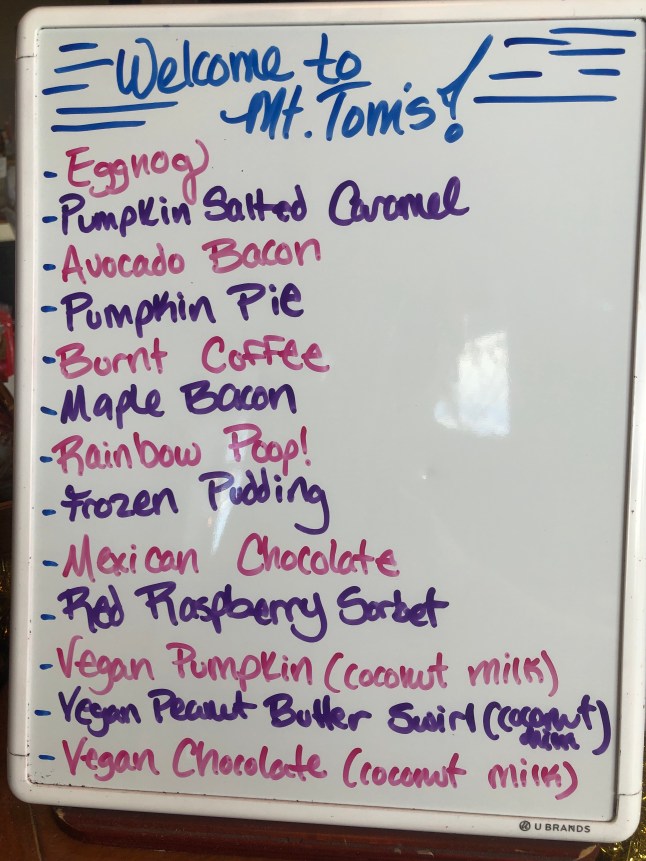 Welcome to
Mt. Tom's!
- Eggnog
- Pumpkin Salted Caramel
- Avocado Bacon
- Pumpkin Pie
- Burnt Coffee
- Maple Bacon
- Rainbow Poop!
- Frozen Pudding
- Mexican Chocolate
- Red Raspberry Sorbet
- Vegan Pumpkin (coconut milk)
- Vegan Peanut Butter Swirl (coconut)
- Vegan Chocolate (coconut milk)
U BRANDS